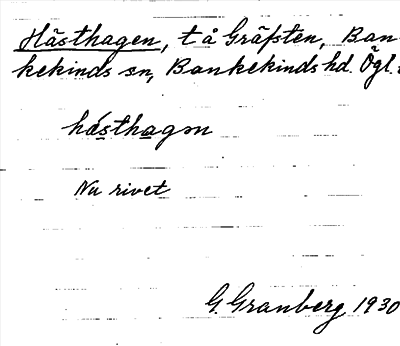 Hästhagen, t å Gräfsten, Ban-
kekinds sn, Bankekinds hd. Ögl.
hästhagən
Nu rivet
G. Granberg 1930